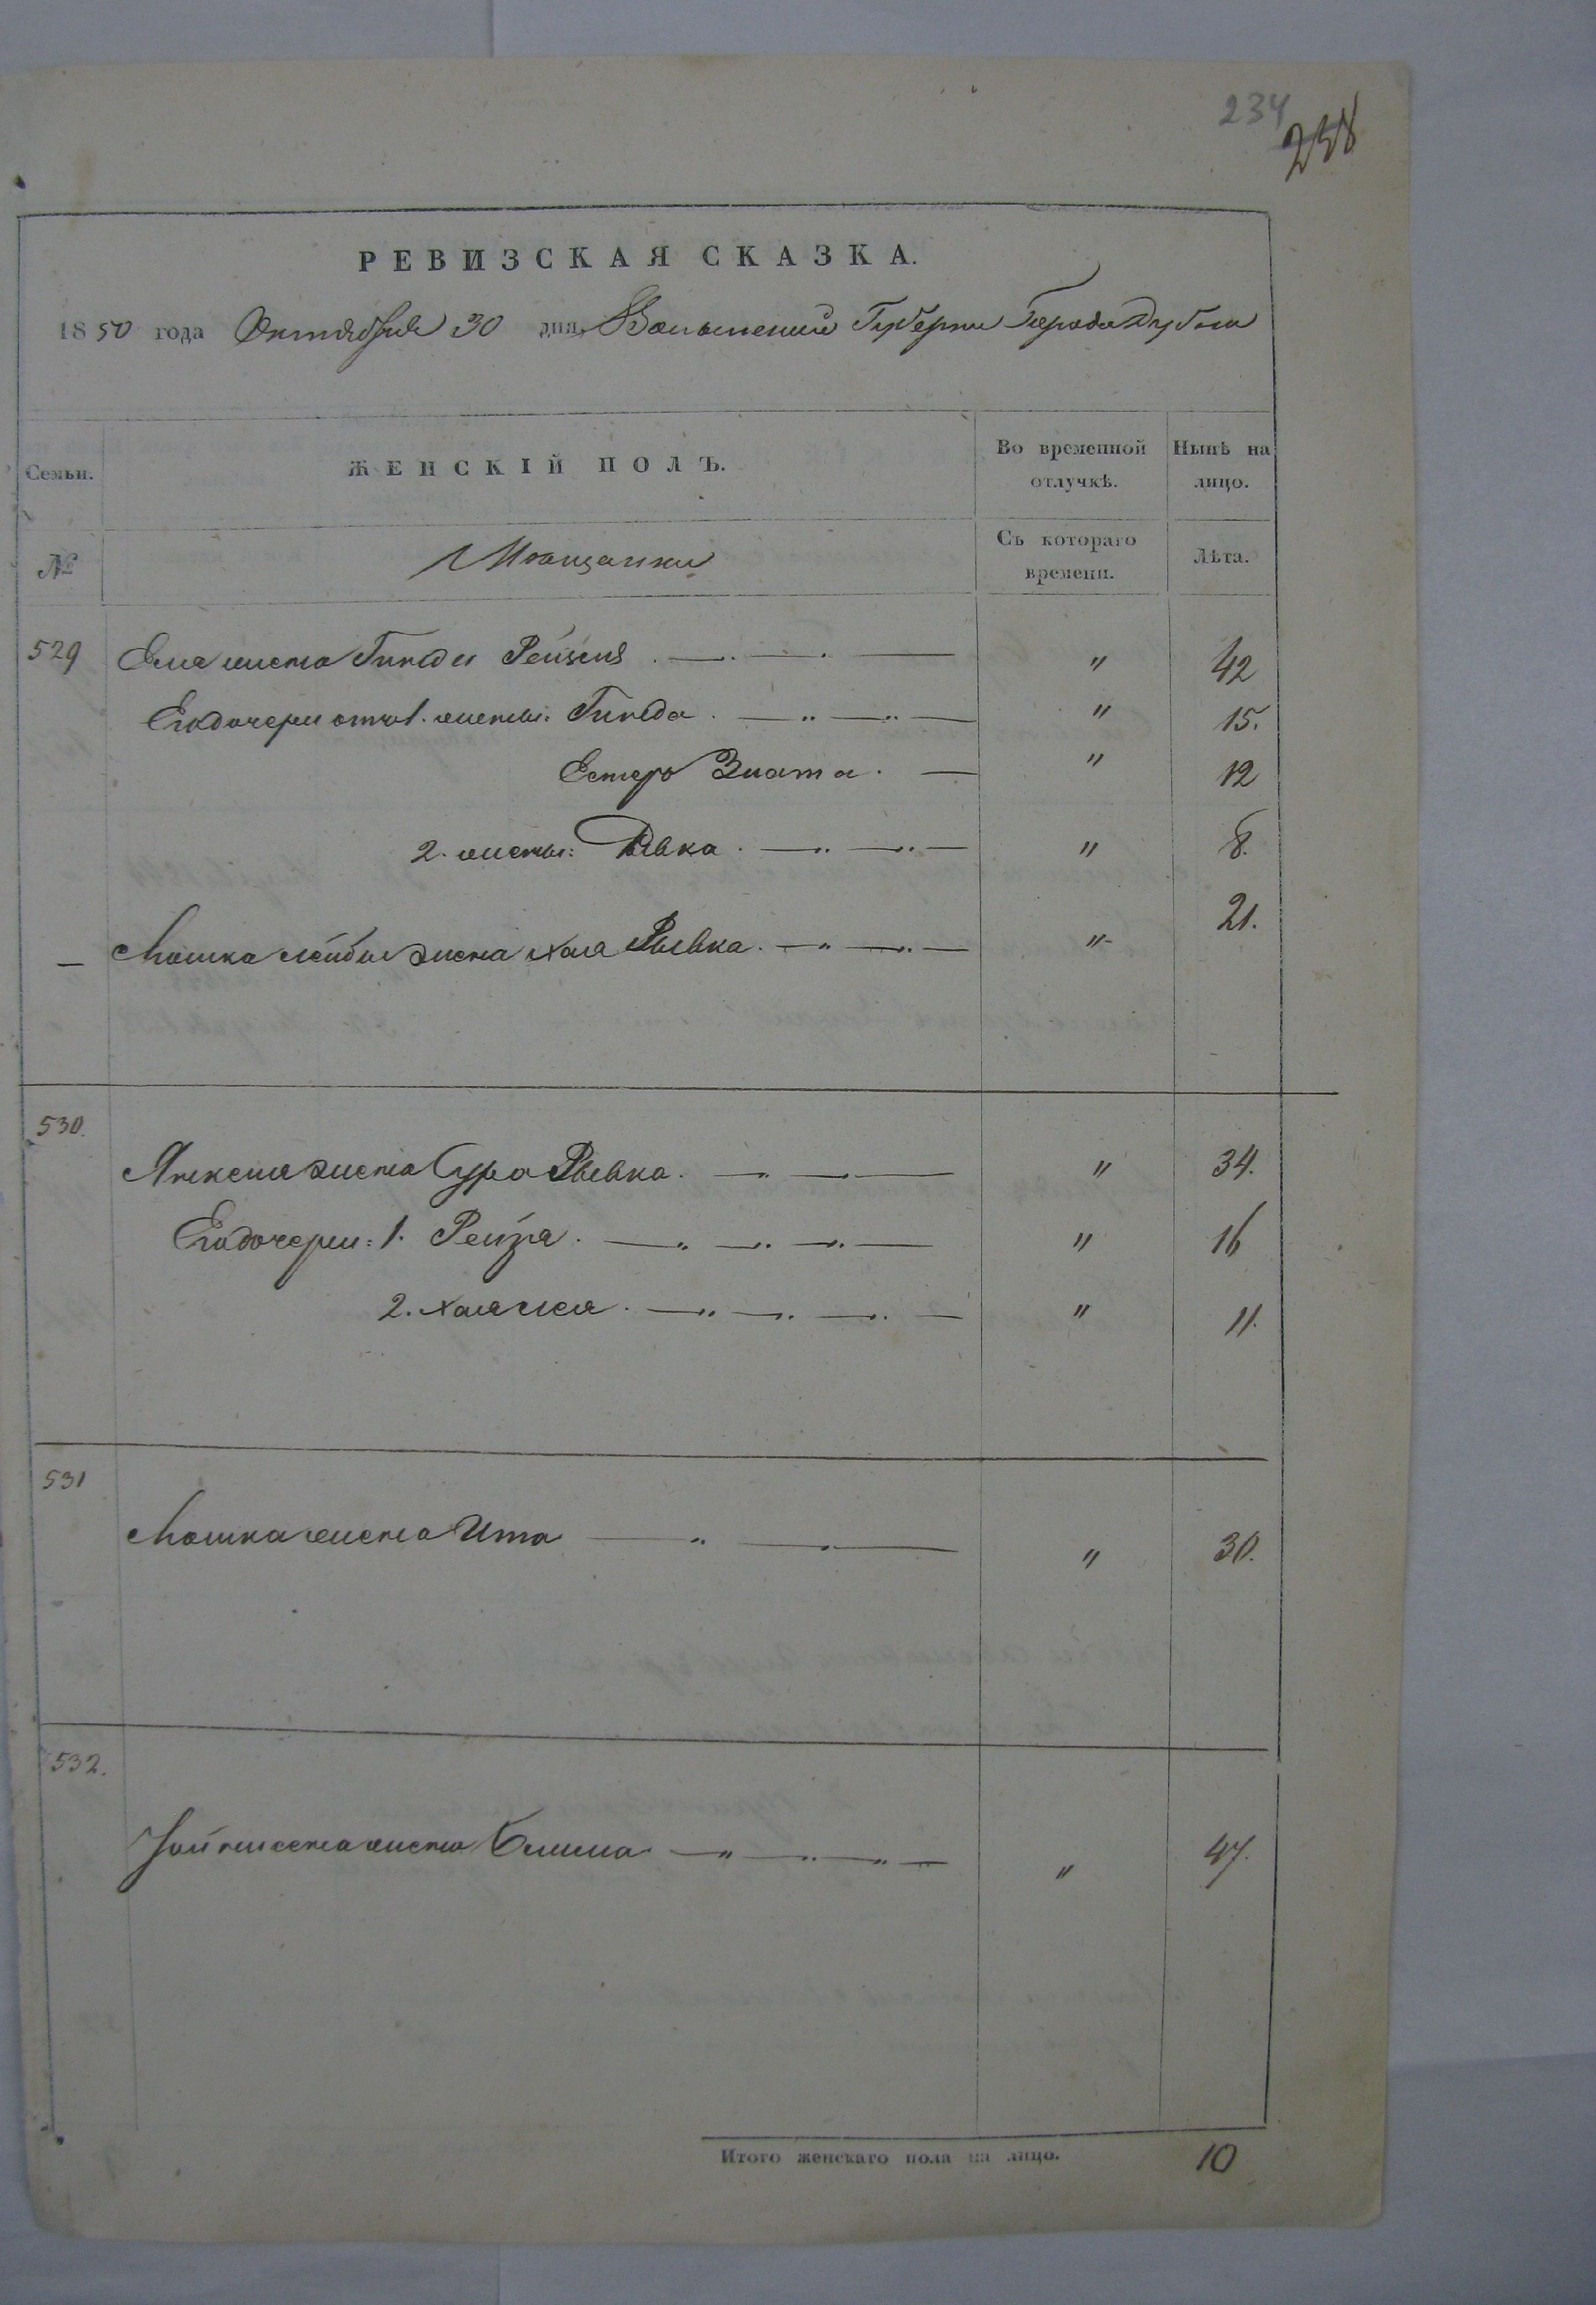 234
258
РЕВИЗСКАЯ СКАЗКА.
1850 года Октября 30 дня Волынской Губернии Города Дубна
Семьи. ЖЕНСКІЙ ПОЛЪ. Во временной отлучкѣ. Нынѣ на лицо.
№ Мѣщанки Съ котораго времени. Лѣта.
529 Еля жена Гинда Рейзя " 42
Его дочери отъ 1. жены: Гинда " 15.
Естеръ Злата " 12
2. жены: Рывка " 8.
— Мошка Лейбы жена Хая Рывка " 21.
530. жена Сура Рывка " 34.
Его дочери: 1. Рейзя " 16
2. Хая Лея " 11.
531 Мошка жена Ита " 30.
532. жена " 47.
Итого женскаго пола на лицо. 10